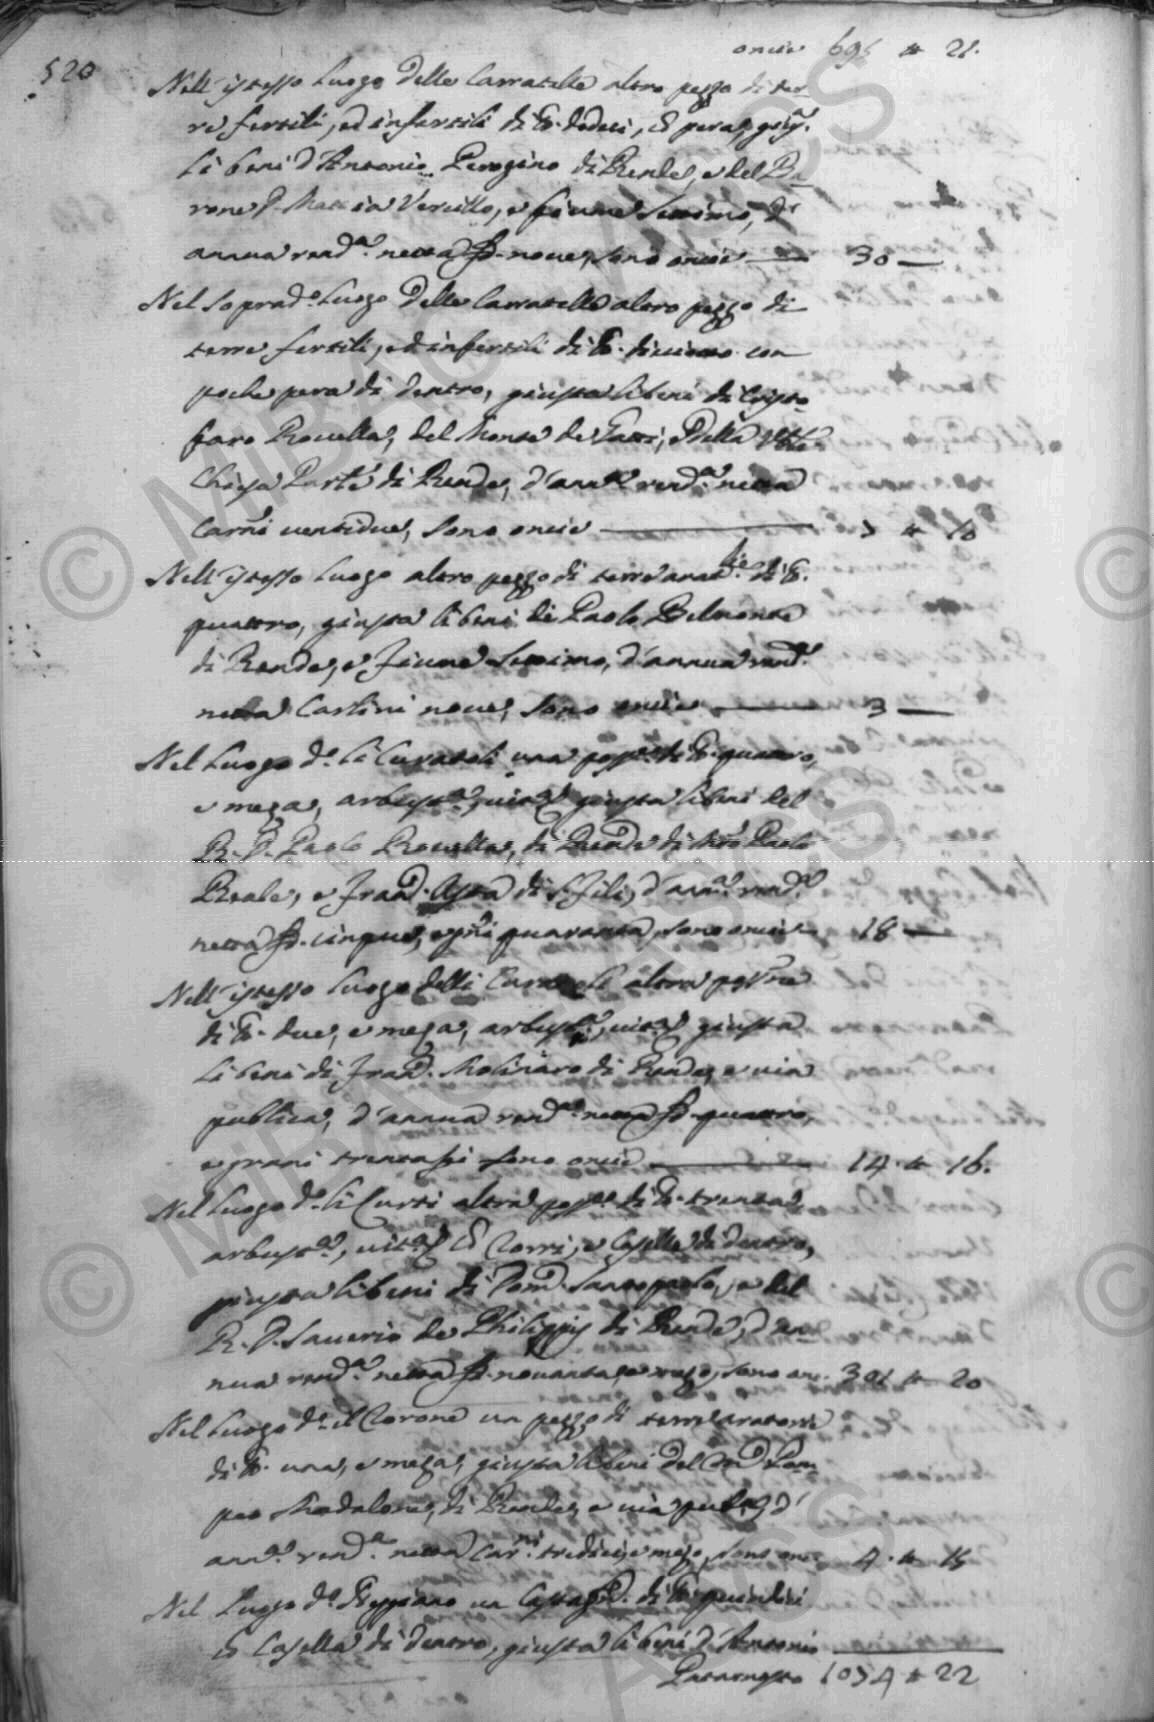 520
oncie 695 " 21.
Nell'istesso Luogo delle Carratelle altro pezzo di ter-
re fertili, ed infertili di T. dodeci, C pera, giusta
li beni d'Antonio Perogino di Rende, e del Ba-
rone D. Mattia Vercillo, e fiume Settimo, d'
annua rend.a netta D. nove, sono oncie — 30 —
Nel soprad.o Luogo delle Carratelle altro pezzo di
terre fertili, ed infertili di T. con
poche pera di dentro, giusta li beni di Cristo-
faro Rovella, del Monte de Gatti, e della
Chiesa di Rende, d'ann.a rend.a netta
Carni ventidue, sono oncie — " 10
Nell'istesso Luogo altro pezzo di terre di T.
quattro, giusta li beni di Paolo Belmonte
di Rende, e fiume Settimo, d'annua rend.a
netta Carlini nove, sono oncie — 3 —
Nel Luogo d.o li Curatoli una poss.ne di T. quattro,
e meza, arbust.a, vit.a giusta li beni del
R. D. Paolo Rovella, di Rende di Paolo
Reale, e Fran.o di S. Fili, d'ann.a rend.a
netta D. cinque, e g.ni quaranta, sono oncie — 18 —
Nell'istesso Luogo delli Curatoli altra poss.ne
di T. due, e meza, arbust.a, vit.a giusta
li beni di Fran.o Molinaro di Rende, e via
publica, d'annua rend.a netta D. quattro,
e grani trentasei sono oncie — 14 " 16.
Nel Luogo d.o li Curti altra poss.ne di T. trenta,
arbust.a, vit.a C Torri, e Caselle di dentro,
giusta li beni di Dom.o Santopaolo, e del
R. D. Saverio de Philippis di Rende, d'an-
nua rend.a netta D. novanta, e mezo, sono on. 301 " 20
Nel Luogo d.o il Torone un pezzo di terre aratorie
di T. una, e meza, giusta li beni del Pom-
peo Madalone, di Rende, e via publ.a, d'
ann.a rend.a netta Car.ni tredici, e mezo, sono on. 4 " 15
Nel Luogo d.o un Castag.o di T. quindici
C Casella di dentro, giusta li beni d'Antonio
1054 " 22